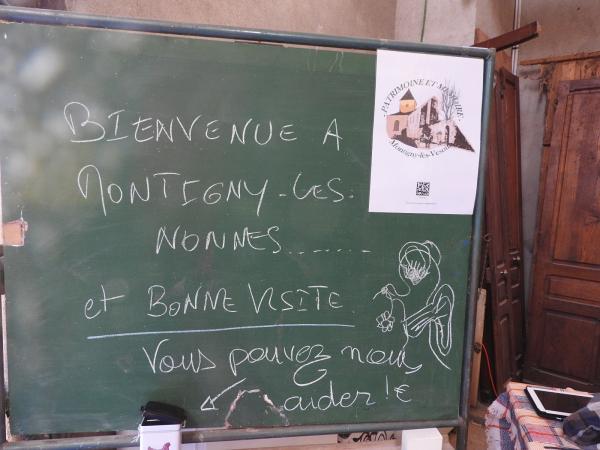 BIENVENUE A
MONTIGNY-LES-
NONNES.......
et BONNE VISITE
Vous pouvez nous
aider ! €
PATRIMOINE ET MÉMOIRE
Montigny-lès-Vesoul